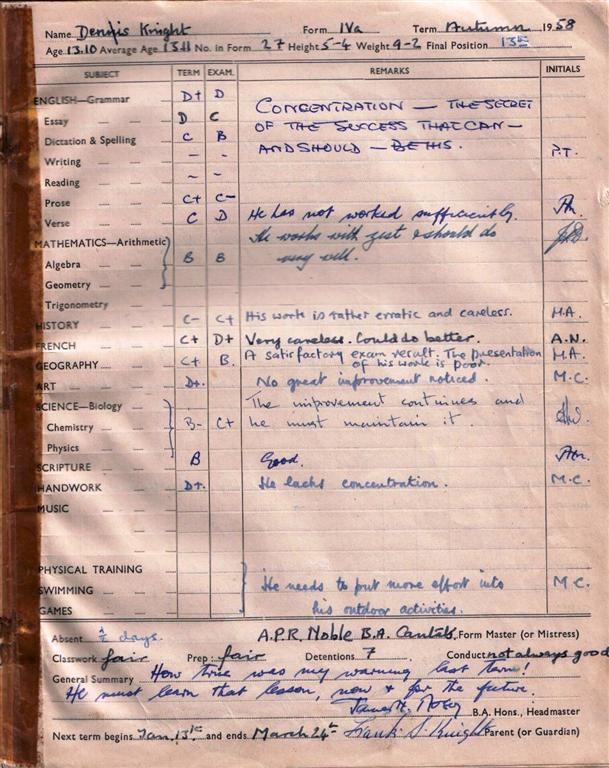 Name Dennis Knight Form IVa Term Autumn 1958
Age 13.10 Average Age 13.11 No. in Form 27 Height 5-4 Weight 9-2 Final Position 13th
SUBJECT TERM EXAM. REMARKS INITIALS
ENGLISH—Grammar D+ D
Essay D C CONCENTRATION — THE SECRET
Dictation & Spelling C B OF THE SUCCESS THAT CAN —
Writing - - AND SHOULD — BE HIS. P.T.
Reading - -
Prose C+ C-
Verse C D He has not worked sufficiently.
MATHEMATICS—Arithmetic He works with zest & should do
Algebra B B very well.
Geometry
Trigonometry
HISTORY C- C+ His work is rather erratic and careless. M.A.
FRENCH C+ D+ Very careless. Could do better. A.N.
GEOGRAPHY C+ B. A satisfactory exam result. The presentation of his work is poor. M.A.
ART D+. No great improvement noticed. M.C.
SCIENCE—Biology The improvement continues and
Chemistry B- C+ he must maintain it.
Physics
SCRIPTURE B Good.
HANDWORK D+. He lacks concentration. M.C.
MUSIC
PHYSICAL TRAINING
SWIMMING He needs to put more effort into M.C.
GAMES his outdoor activities.
Absent ½ days. A.P.R. Noble B.A. Cantab. Form Master (or Mistress)
Classwork fair Prep: fair Detentions 7 Conduct not always good
General Summary How true was my warning last term!
He must learn that lesson, now & for the future.
B.A. Hons., Headmaster
Next term begins Jan. 13th and ends March 24th Frank S. Knight Parent (or Guardian)